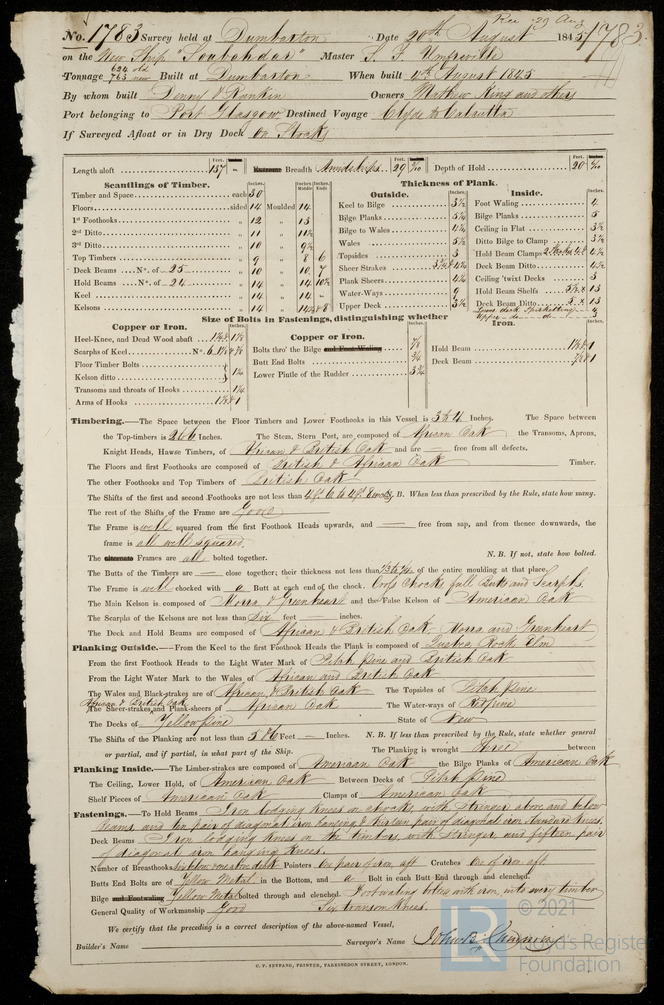 Rec 29 Aug
No. 1783 Survey held at Dumbarton Date 20th August 1845 1783
on the New Ship "Soubahdar" Master S. J. Umfreville
Tonnage 624 old 765 new Built at Dumbarton When built 4th August 1845
By whom built Denny & Rankin Owners Mathew King and others
Port belonging to Port Glasgow Destined Voyage Clyde to Calcutta
If Surveyed Afloat or in Dry Dock On Stocks
Length aloft 137 Extreme Breadth Amidships 29 Depth of Hold 20
Scantlings of Timber.
Timber and Space each 30
Floors sided 14 Moulded 14
1st Foothooks 12 13
2nd Ditto 11 11½
3rd Ditto 10 9½
Top Timbers 9 8 6
Deck Beams No. of 25 10 10 7
Hold Beams No. of 24 14 14 10½
Keel 14 14
Kelsons 14
Thickness of Plank.
Outside.
Keel to Bilge 3½
Bilge Planks
Bilge to Wales 4½
Wales 5½
Topsides 3
Sheer Strakes
Plank Sheers 4½
Water-Ways 9
Upper Deck 3½
Inside.
Foot Waling 4
Bilge Planks 5
Ceiling in Flat 3½
Ditto Bilge to Clamp 3½
Hold Beam Clamps 4½
Deck Beam Ditto 4½
Ceiling 'twixt Decks 3
Hold Beam Shelfs 5½ x 13
Deck Beam Ditto 5 x 13
Lower deck Spirketting 4
Upper do do 3
Size of Bolts in Fastenings, distinguishing whether
Copper or Iron.
Heel-Knee, and Dead Wood abaft
Scarphs of Keel No. 6
Floor Timber Bolts
Kelson ditto
Transoms and throats of Hooks
Arms of Hooks
Copper or Iron.
Bolts thro' the Bilge and Foot Waling
Butt End Bolts ¾
Lower Pintle of the Rudder
Iron.
Hold Beam
Deck Beam
Timbering.—The Space between the Floor Timbers and Lower Foothooks in this Vessel is 3 to 4 Inches. The Space between
the Top-timbers is 2 to 6 Inches. The Stem, Stern Post, are composed of African Oak the Transoms, Aprons,
Knight Heads, Hawse Timbers, of African & British Oak and are — free from all defects.
The Floors and first Foothooks are composed of British & African Oak Timber.
The other Foothooks and Top Timbers of British Oak
The Shifts of the first and second Foothooks are not less than N. B. When less than prescribed by the Rule, state how many.
The rest of the Shifts of the Frame are Good
The Frame is well squared from the first Foothook Heads upwards, and — free from sap, and from thence downwards, the
frame is all well squared.
The alternate Frames are all bolted together. N. B. If not, state how bolted.
The Butts of the Timbers are — close together; their thickness not less than of the entire moulding at that place.
The Frame is well chocked with a Butt at each end of the chock. Cross Chocks full Butts and Scarphs
The Main Kelson is composed of Morra & Greenheart and the False Kelson of American Oak
The Scarphs of the Kelsons are not less than Six feet — inches.
The Deck and Hold Beams are composed of African & British Oak, Morra and Greenheart
Planking Outside.—From the Keel to the first Foothook Heads the Plank is composed of Quebec Rock Elm
From the first Foothook Heads to the Light Water Mark of Pitch pine and British Oak
From the Light Water Mark to the Wales of African and British Oak
The Wales and Black-strakes are of African & British Oak The Topsides of Pitch Pine
African & British Oak
The Sheer-strakes, and Plank-sheers of African Oak The Water-ways of Redpine
The Decks of Yellow pine State of New
The Shifts of the Planking are not less than 5 to 6 Feet — Inches. N. B. If less than prescribed by the Rule, state whether general
or partial, and if partial, in what part of the Ship. The Planking is wrought Three between
Planking Inside.—The Limber-strakes are composed of American Oak the Bilge Planks of American Oak
The Ceiling, Lower Hold, of American Oak Between Decks of Pitch Pine
Shelf Pieces of American Oak Clamps of American Oak
Fastenings.—To Hold Beams Iron lodging Knees on chocks, with Stringer above and below
beams, and ten pair of diagonal iron hanging & thirteen pair of diagonal iron standard knees,
Deck Beams Iron lodging Knees on the timbers, with stringer, and fifteen pair
of diagonal iron hanging knees.
Number of Breasthooks six below one above deck Pointers One pair of iron aft Crutches One of iron aft.
Butts End Bolts are of Yellow Metal in the Bottom, and a Bolt in each Butt End through and clenched.
Bilge and Footwaling Yellow Metal bolted through and clenched. Footwaling bolted with iron, into every timber
General Quality of Workmanship Good Six transom Knees.
We certify that the preceding is a correct description of the above-named Vessel,
Builder's Name Surveyor's Name
C. F. SEYFANG, PRINTER, FARRINGDON STREET, LONDON.
LR © 2021
Lloyd's Register
Foundation